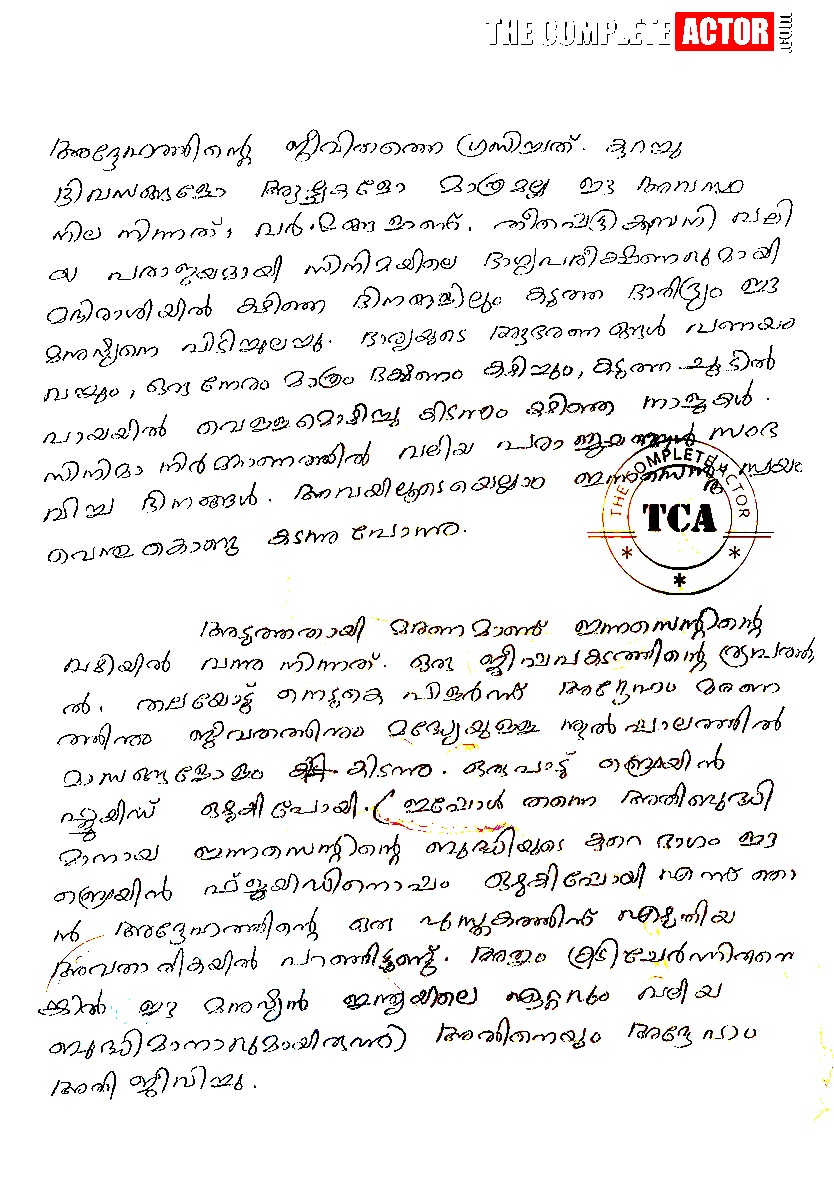 THE COMPLETE ACTOR
അദ്ദേഹത്തിന്റെ ജീവിതത്തെ ഗ്രസിച്ചത്. കുറച്ചു
ദിവസങ്ങളോ ആഴ്ചകളോ മാത്രമല്ല ഈ അവസ്ഥ
നില നിന്നത്, വർഷങ്ങളാണ്. തീപ്പെട്ടിക്കമ്പനി വലി
യ പരാജയമായി സിനിമയിലെ ഭാഗ്യപരീക്ഷണവുമായി
മദിരാശിയിൽ കഴിഞ്ഞ ദിനങ്ങളിലും കടുത്ത ദാരിദ്ര്യം ഈ
മനുഷ്യനെ പിടിച്ചുലച്ചു. ഭാര്യയുടെ ആഭരണങ്ങൾ പണയം
വച്ചും, ഒരു നേരം മാത്രം ഭക്ഷണം കഴിച്ചും, കടുത്ത ചൂടിൽ
പായയിൽ വെള്ളമൊഴിച്ചു കിടന്നും കഴിഞ്ഞ നാളുകൾ.
സിനിമാ നിർമ്മാണത്തിൽ വലിയ പരാജയങ്ങൾ സംഭ
വിച്ച ദിനങ്ങൾ. അവയിലൂടെയെല്ലാം ഇന്നസെന്റ് സ്വയം
വെന്തു കൊണ്ടു കടന്നു പോന്നു.
THE COMPLETE ACTOR
TCA
അടുത്തതായി മരണമാണ് ഇന്നസെന്റിന്റെ
വഴിയിൽ വന്നു നിന്നത്. ഒരു ജീപ്പപകടത്തിന്റെ രൂപത്തി
ൽ. തലയോട്ടി നെടുകെ പിളർന്ന് അദ്ദേഹം മരണ
ത്തിനും ജീവിതത്തിനും മദ്ധ്യേയുള്ള നൂൽ പാലത്തിൽ
മാസങ്ങളോളം കിടന്നു. ഒരുപാട് ബ്രെയിൻ
ഫ്ലൂയിഡ് ഒഴുകിപോയി. (ഇപ്പോൾ തന്നെ അതിബുദ്ധി
മാനായ ഇന്നസെന്റിന്റെ ബുദ്ധിയുടെ കുറെ ഭാഗം ഈ
ബ്രെയിൻ ഫ്ലൂയിഡിനൊപ്പം ഒഴുകിപ്പോയി എന്ന് ഞാ
ൻ അദ്ദേഹത്തിന്റെ ഒരു പുസ്തകത്തിന് എഴുതിയ
അവതാരികയിൽ പറഞ്ഞിട്ടുണ്ട്. അതും കൂടിചേർന്നിരുന്നെ
ങ്കിൽ ഈ മനുഷ്യൻ ഇന്ത്യയിലെ ഏറ്റവും വലിയ
ബുദ്ധിമാനാവുമായിരുന്നു) അതിനെയും അദ്ദേഹം
അതിജീവിച്ചു.